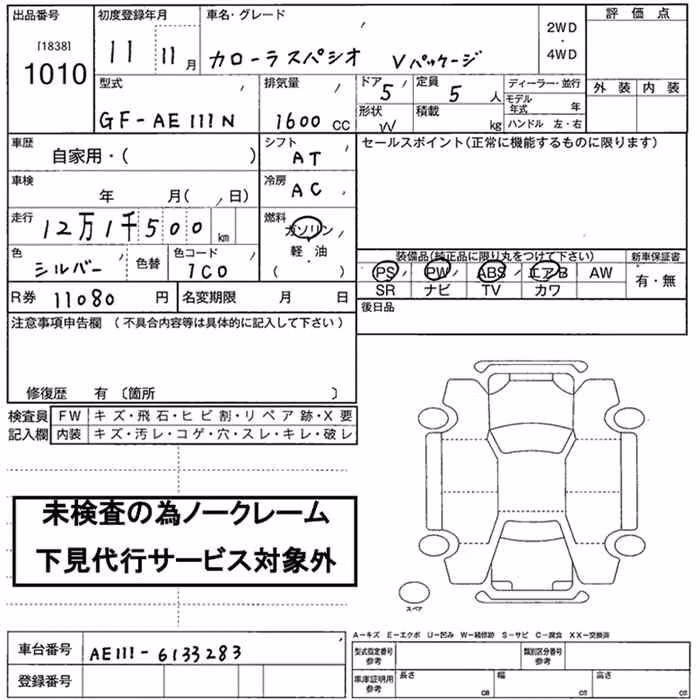 出品番号 初度登録年月 車名・グレード 2WD・4WD 評価点
[1838]
1010 11 11月 カローラスパシオ Vパッケージ
外装 内装
型式 排気量 ドア 定員 ディーラー・並行
GF-AE111N 1600cc 5 5人 モデル年式 年
形状 積載
W kg ハンドル 左・右
車歴 シフト セールスポイント(正常に機能するものに限ります)
自家用・( ) AT
車検 冷房
年 月( 日) AC
走行 燃料
12万1千500km ガソリン・軽油
( )
色 色替 色コード
シルバー 1C0
装備品(純正品に限り丸をつけて下さい) 新車保証書
PS PW ABS エアB AW 有・無
SR ナビ TV カワ
R券 11080円 名変期限 月 日 後日品
注意事項申告欄(不具合内容等は具体的に記入して下さい)
修復歴 有〔箇所 〕
検査員記入欄 FW キズ・飛石・ヒビ割・リペア跡・X要
内装 キズ・汚レ・コゲ・穴・スレ・キレ・破レ
未検査の為ノークレーム
下見代行サービス対象外
スペア
A−キズ E−エクボ U−凹み W−補修跡 S−サビ C−腐食 XX−交換済
車台番号 AE111-6133283 型式指定番号参考 類別区分番号参考
登録番号 車庫証明用参考 長さ 幅 高さ